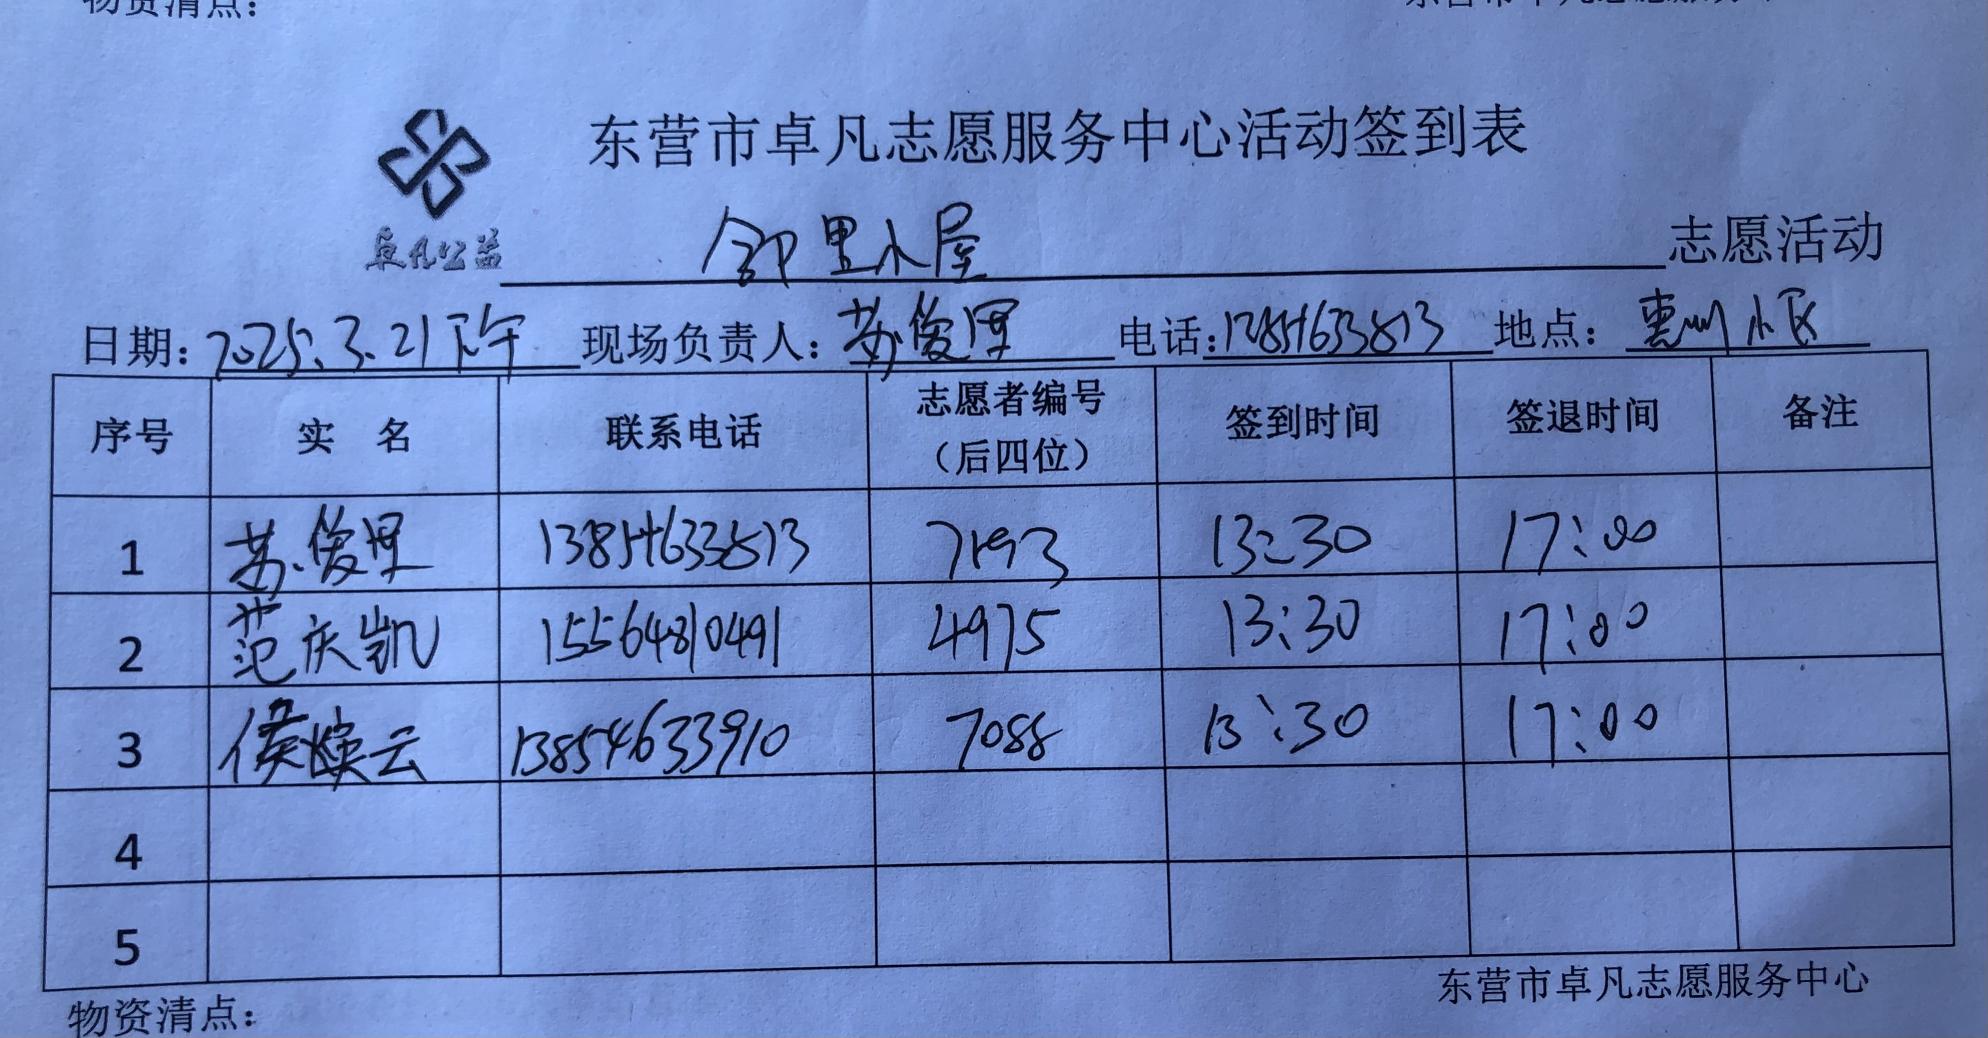 物资清点：
东营市卓凡志愿服务中心
东营市卓凡志愿服务中心活动签到表
卓凡公益
邻里小屋 志愿活动
日期：2025.3.21下午 现场负责人：苏俊 电话：13854633813 地点：惠州小区
序号 实 名 联系电话 志愿者编号（后四位） 签到时间 签退时间 备注
1 苏俊 13854633813 7193 13:30 17:00
2 范庆凯 15564810491 4975 13:30 17:00
3 侯焕云 13854633910 7088 13:30 17:00
4
5
东营市卓凡志愿服务中心
物资清点：